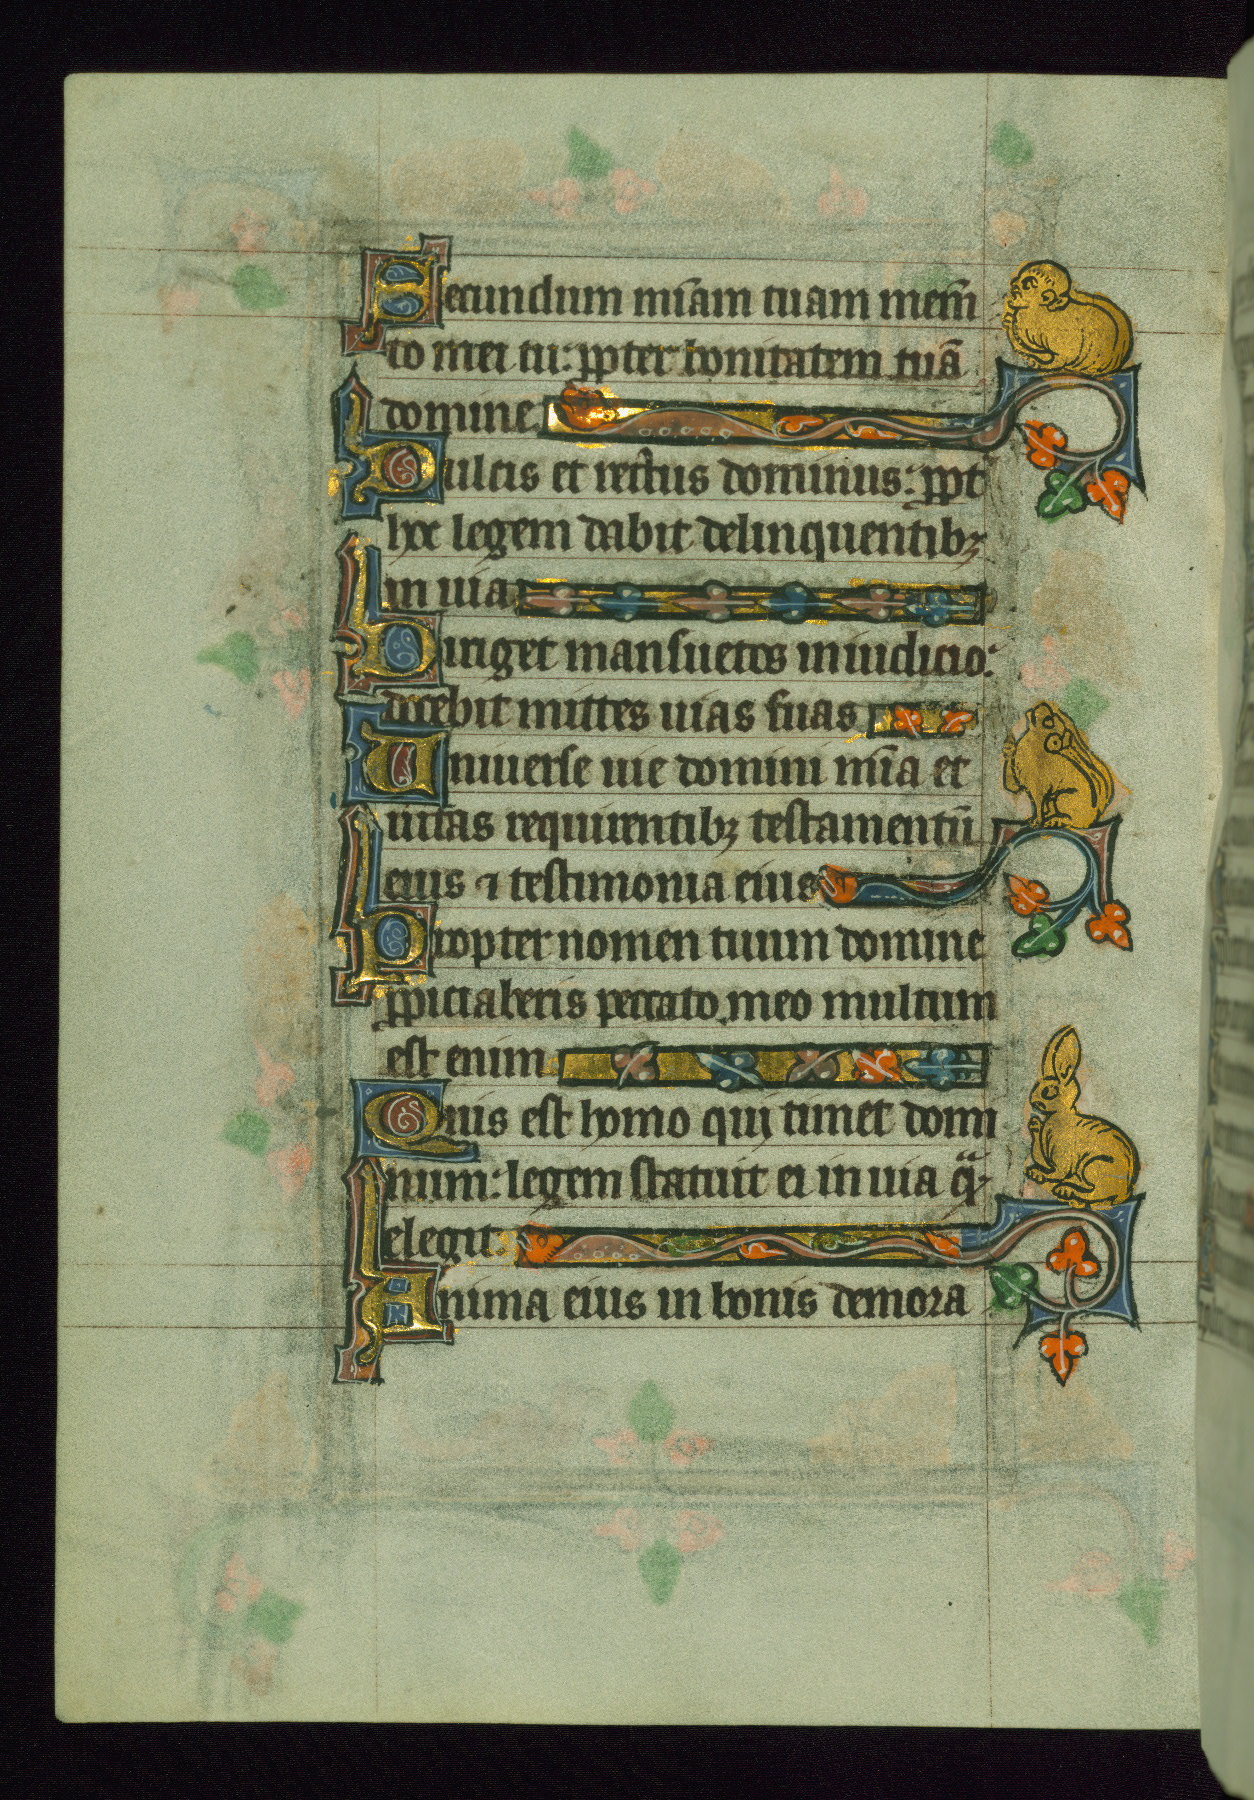 Secundum mīam tuam mem̄
to mei tu: ꝓpter bonitatem tuā
domine
Dulcis et rectus dominus: ꝓpt
hoc legem dabit delinquentibꝫ
in uia
Diriget mansuetos in iudicio:
docebit mittes uias suas
Uniuerse uie domini mīa et
uitas requirentibꝫ testamentū
eius ⁊ testimonia eius
Propter nomen tuum domine
ꝓpiciaberis peccato meo multum
est enim
Quis est homo qui timet domi
num: legem statuit ei in uia quā
elegit
Anima eius in bonis demora